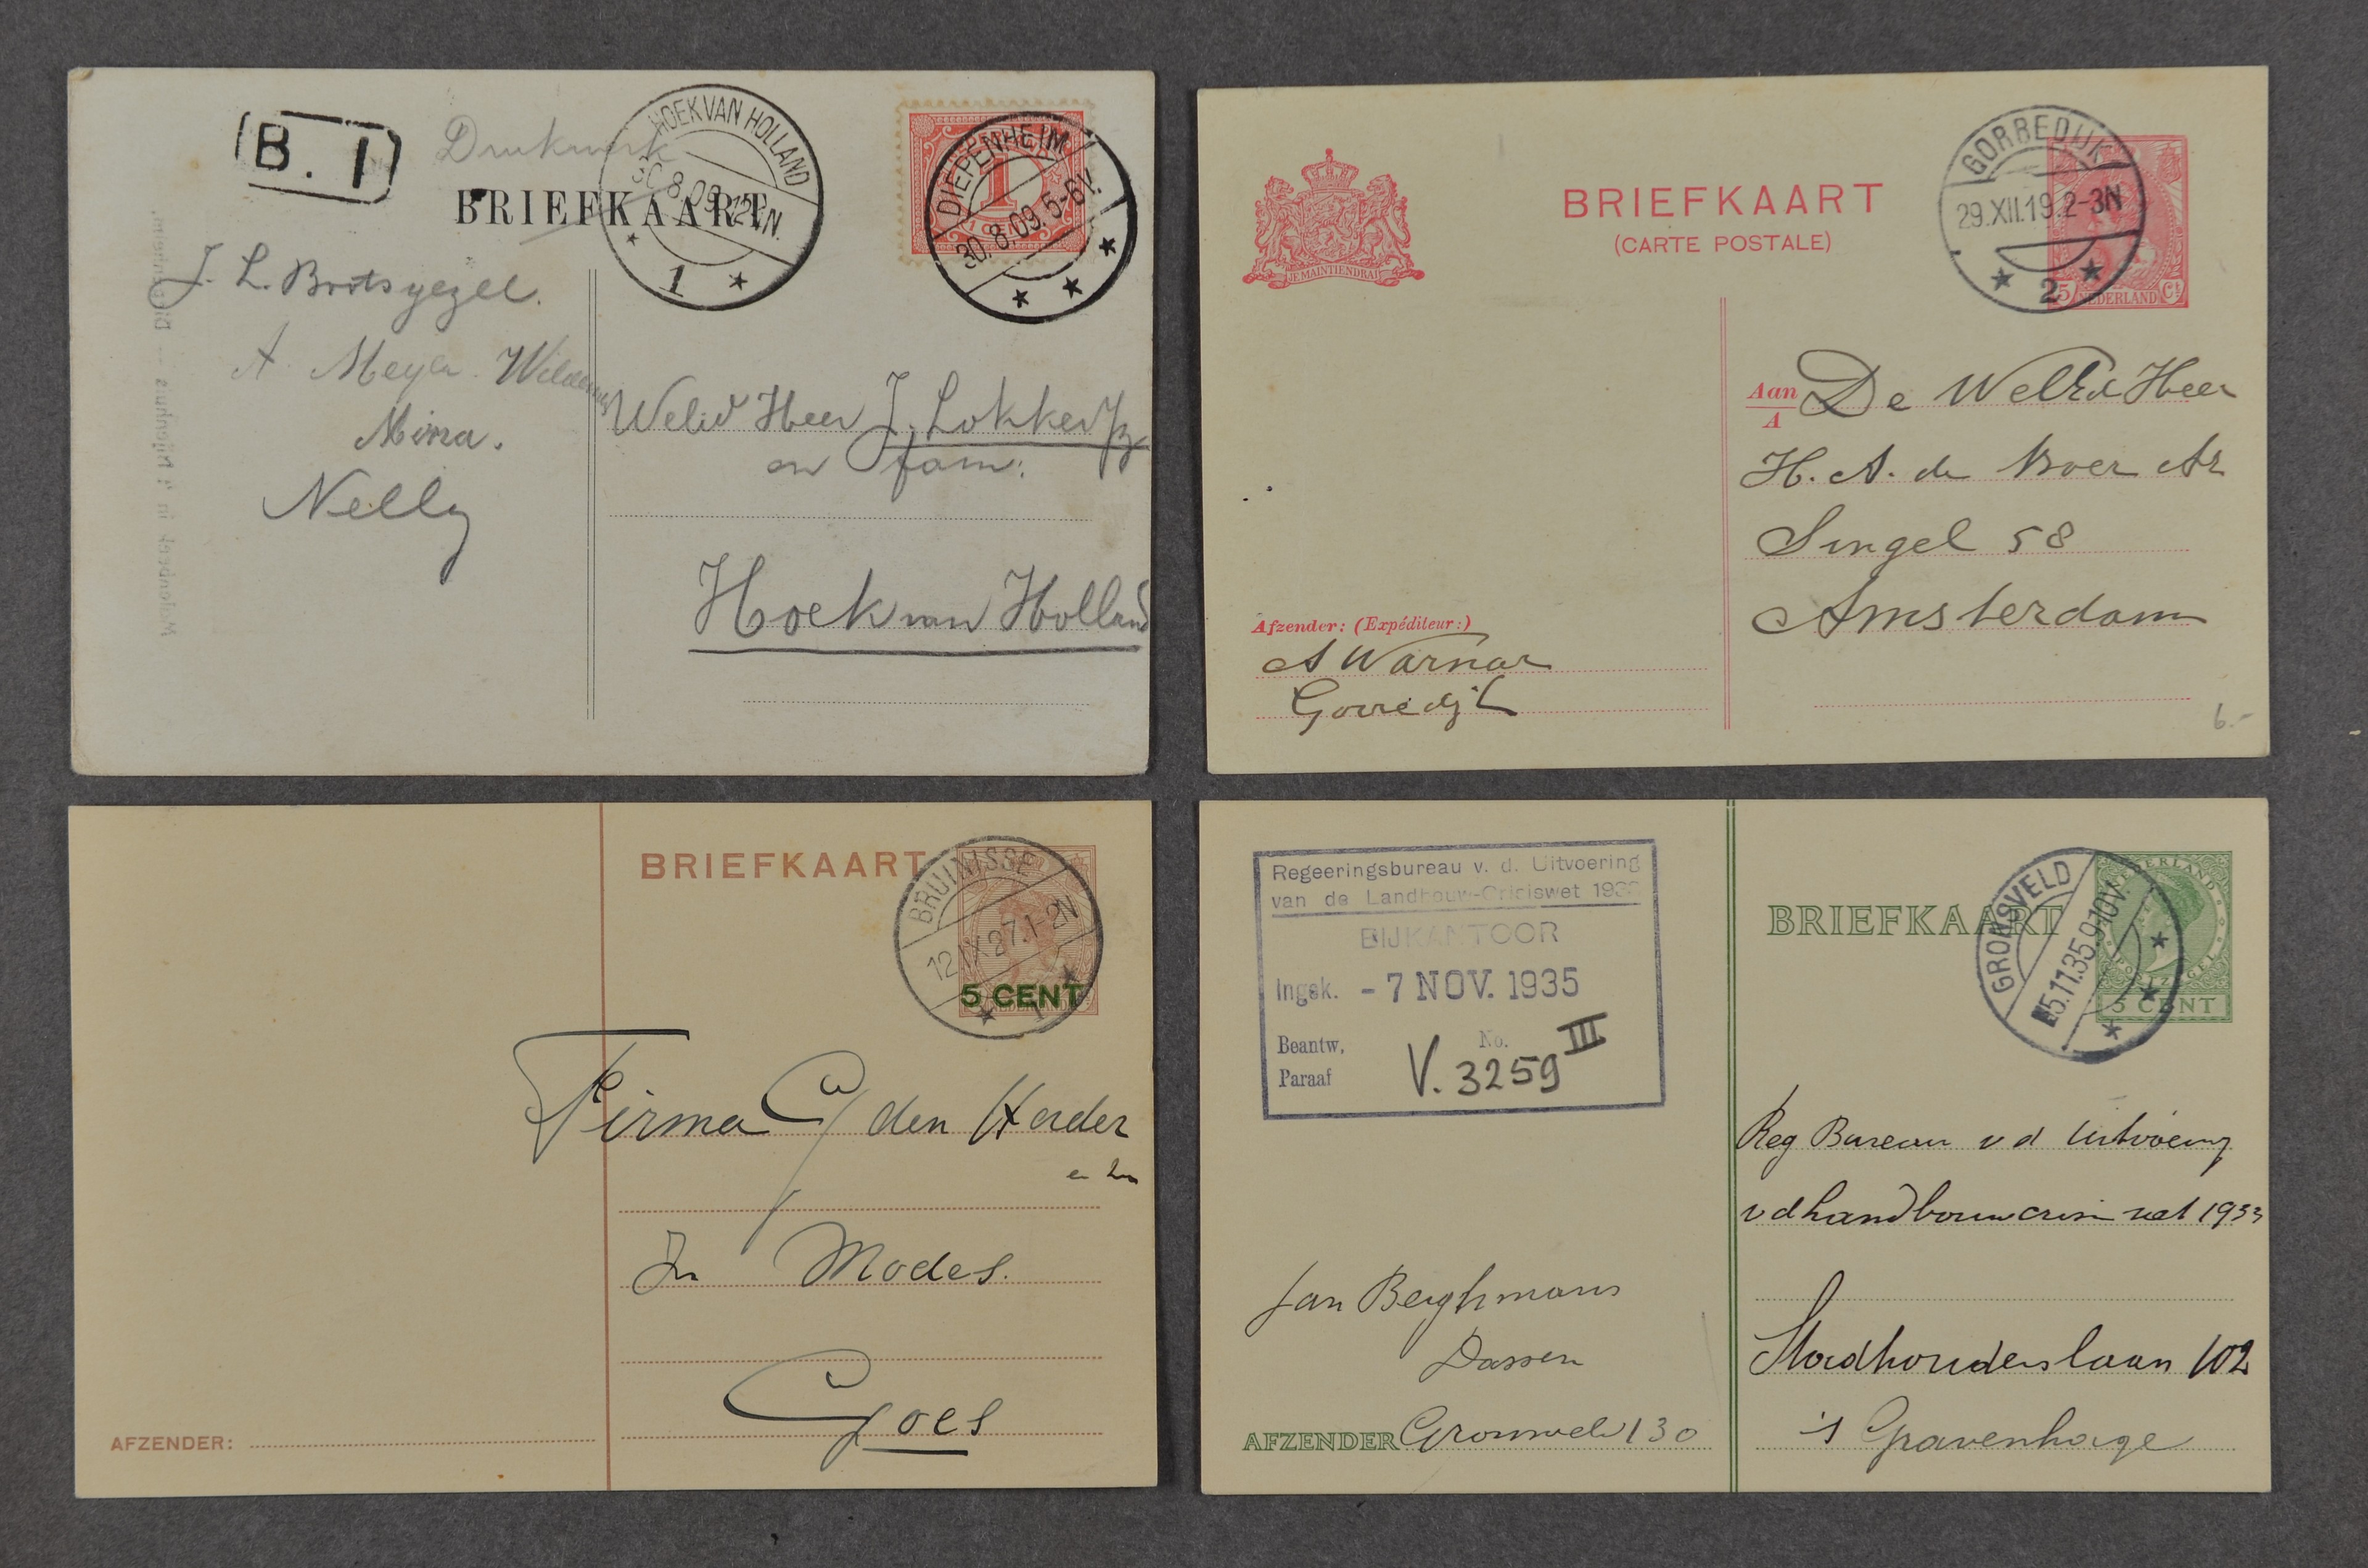 B. 1
Drukwerk
BRIEFKAART
HOEK VAN HOLLAND
30.8.09.12-1N.
1
1
DIEPENHEIM
30.8.09.5-6V.
J. L.
A. Meyer
Mina.
Nelly
Molenbeek in 't Nijenhuis — Diepenheim.
Weled Heer J. Lokker Jz
en fam:
Hoek van Holland
JE MAINTIENDRAI
BRIEFKAART
(CARTE POSTALE)
GORREDIJK
29.XII.19.2-3N
2
5 NEDERLAND Ct
Aan
A
De WelEd Heer
H. A. de Boer Az
Singel 58
Amsterdam
Afzender: (Expéditeur:)
A Warnar
Gorredijk
6.-
BRIEFKAART
BRUINISSE
12.IX.27.1-2N
1
5 CENT
NEDERLAND
Firma C den Herder
en Zn
In Modes.
Goes
AFZENDER:
Regeeringsbureau v. d. Uitvoering
van de Landbouw-Crisiswet 1933
BIJKANTOOR
Ingek. - 7 NOV. 1935
Beantw, No.
Paraaf V. 3259 III
BRIEFKAART
GRONSVELD
5.11.35.9-10V.
NEDERLAND
POSTZEGEL
5 CENT
Reg Bureau v d Uitvoering
v d Landbouwcrisis wet 1933
Stadhouderslaan 102
's Gravenhage
Jan Berghmans
Dassen
AFZENDER Gronsveld 130